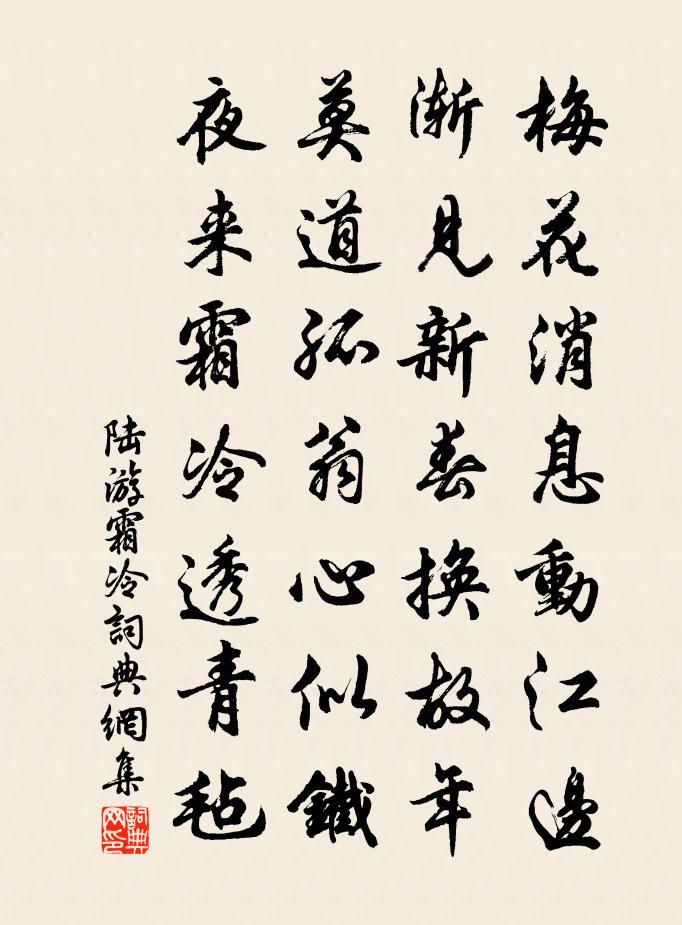 梅花消息動江邊
漸見新春換故年
莫道孤翁心似鐵
夜来霜冷透青毡
陆游霜冷詞典網集
詞典网印